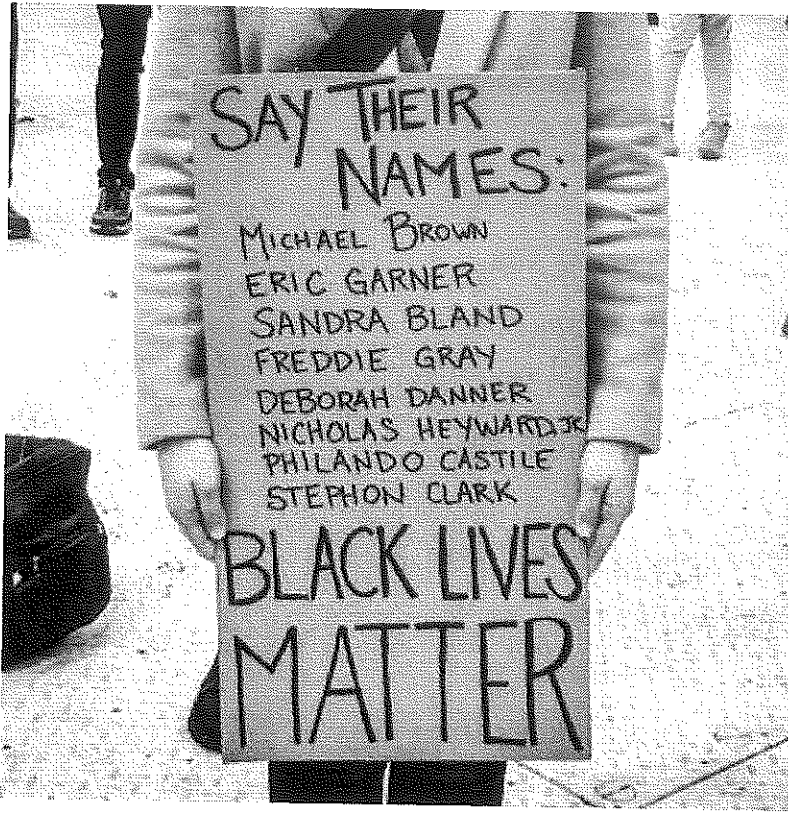 SAY THEIR
NAMES:
MICHAEL BROWN
ERIC GARNER
SANDRA BLAND
FREDDIE GRAY
DEBORAH DANNER
NICHOLAS HEYWARD JR
PHILANDO CASTILE
STEPHON CLARK
BLACK LIVES
MATTER